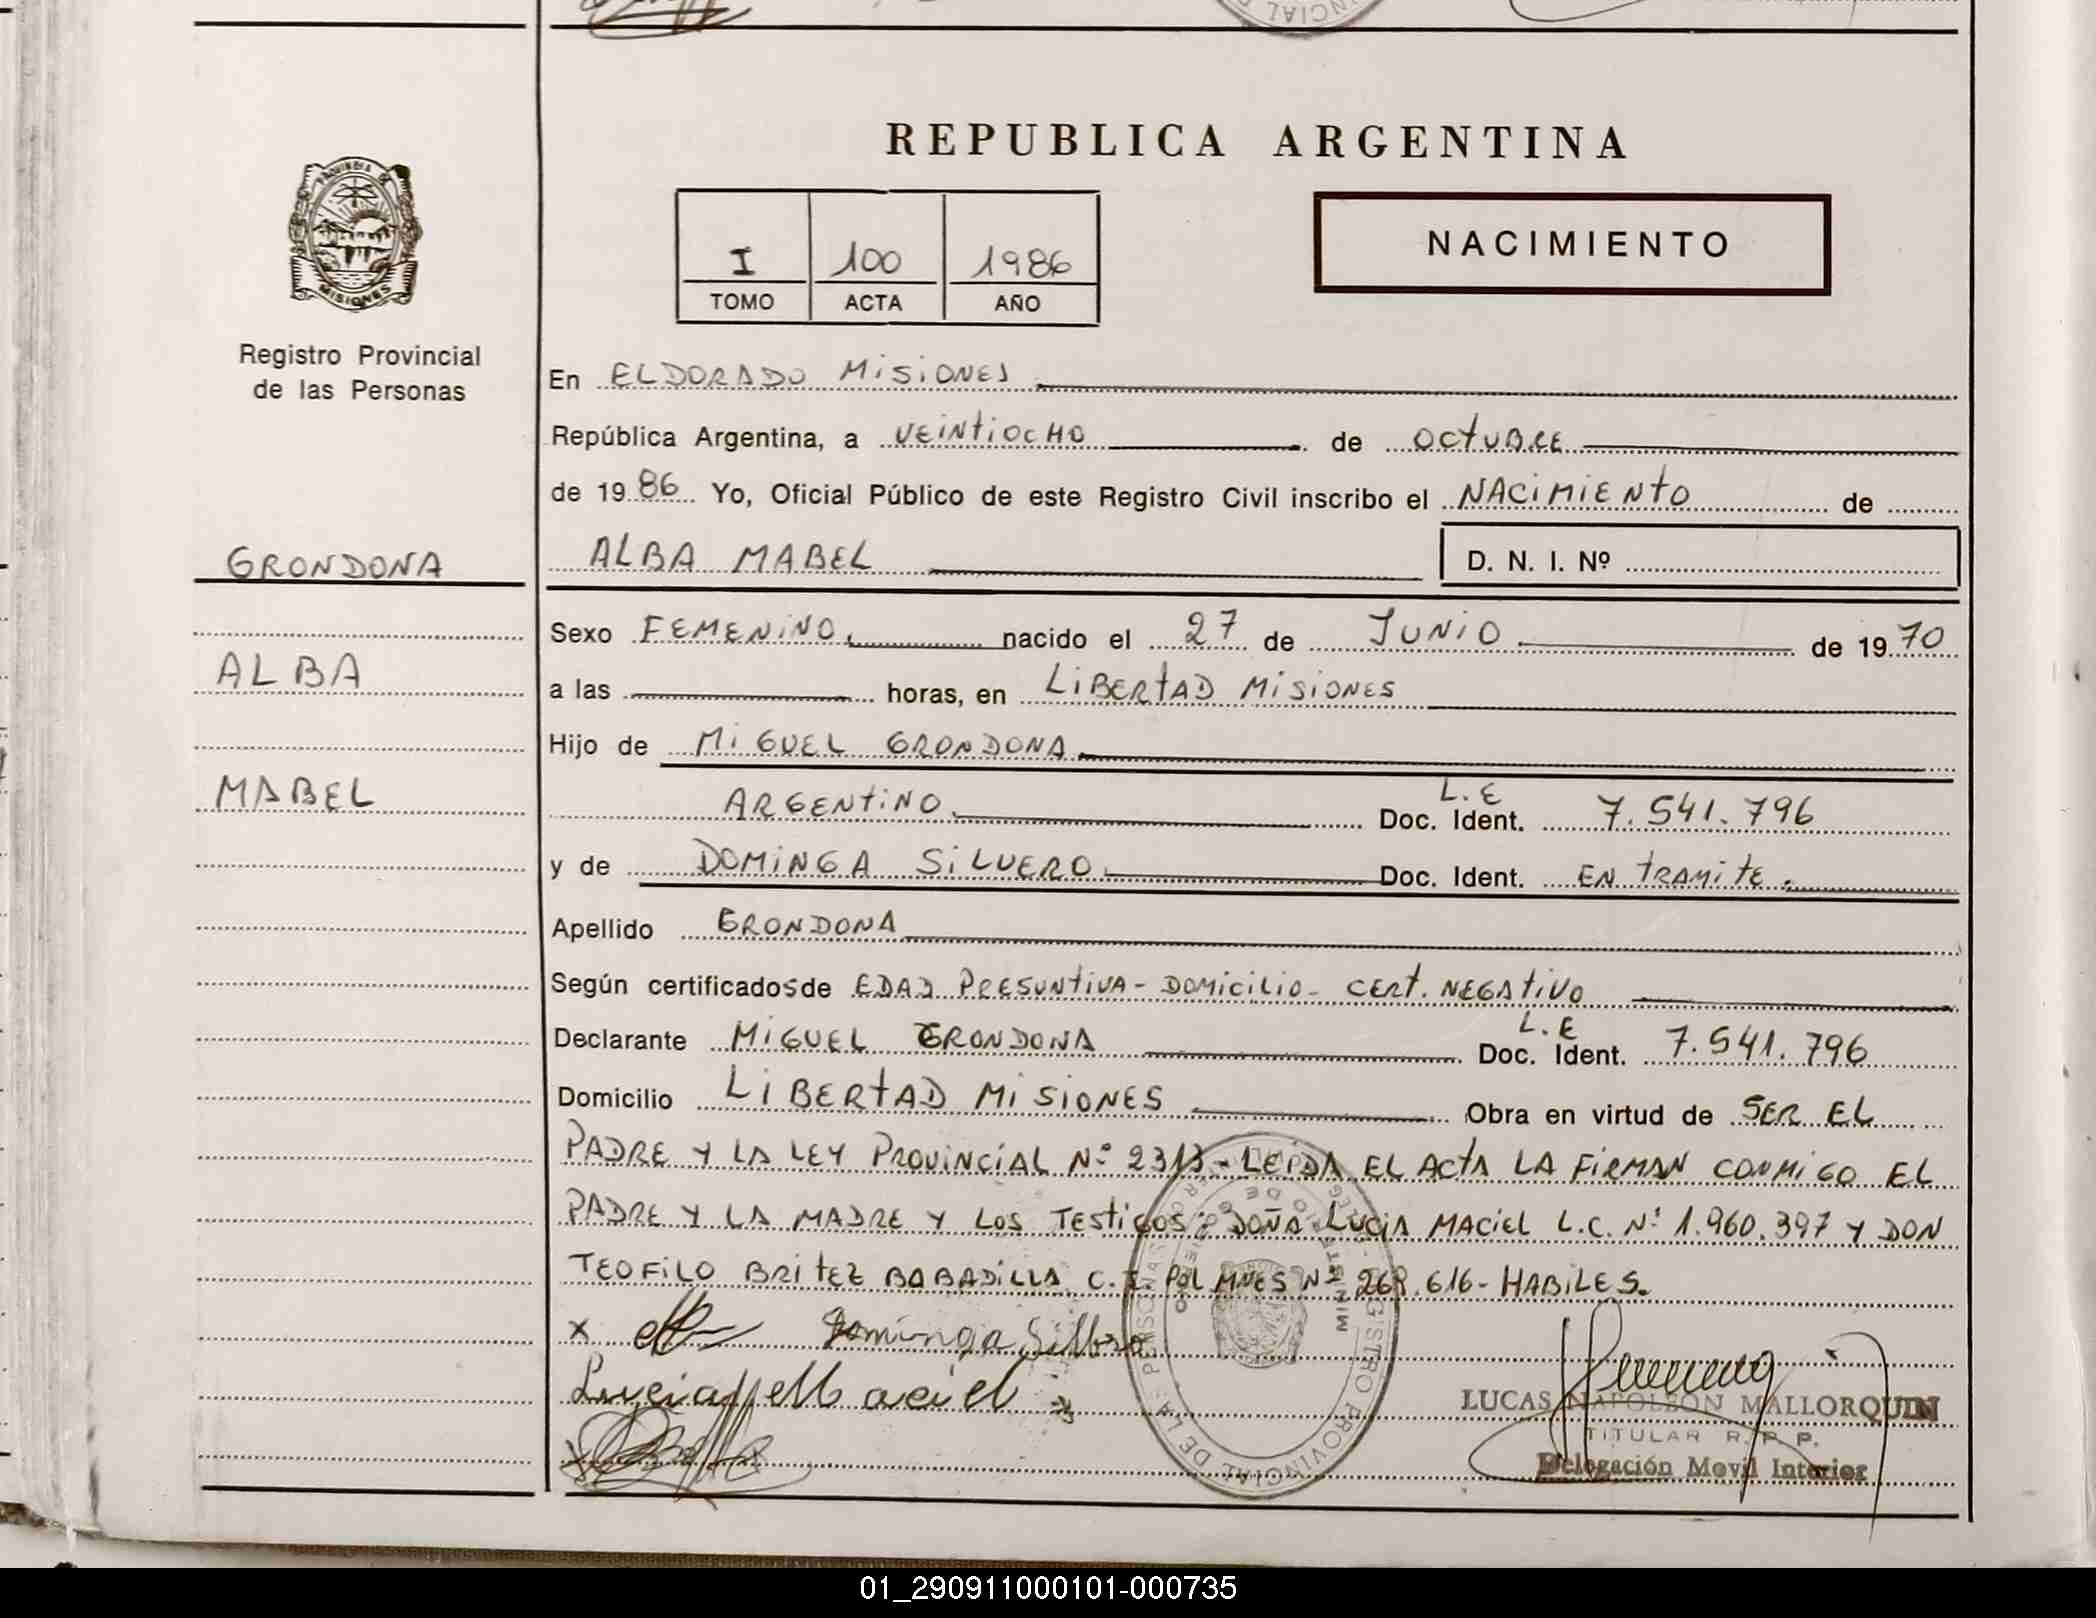 REPUBLICA ARGENTINA
PROVINCIA DE
MISIONES
I 100 1986
TOMO ACTA AÑO
NACIMIENTO
Registro Provincial
de las Personas
En ELDORADO MISIONES
República Argentina, a VEINTIOCHO de OCTUBRE
de 1986 Yo, Oficial Público de este Registro Civil inscribo el NACIMIENTO de
GRONDONA
ALBA MABEL D. N. I. Nº
Sexo FEMENINO, nacido el 27 de JUNIO de 1970
ALBA
a las horas, en LIBERTAD MISIONES
Hijo de MIGUEL GRONDONA
MABEL
ARGENTINO L.E Doc. Ident. 7.541.796
y de DOMINGA SILVERO Doc. Ident. EN TRAMITE.
Apellido GRONDONA
Según certificados de EDAD PRESUNTIVA - DOMICILIO - CERT. NEGATIVO
Declarante MIGUEL GRONDONA L.E Doc. Ident. 7.541.796
Domicilio LIBERTAD MISIONES Obra en virtud de SER EL
PADRE Y LA LEY PROVINCIAL Nº 2313 - LEIDA EL ACTA LA FIRMAN CONMIGO EL
PADRE Y LA MADRE Y LOS TESTIGOS: DOÑA LUCIA MACIEL L.C. Nº 1.960.397 Y DON
TEOFILO BRITEZ BABADILLA C.I. POL MNES Nº 268.616 - HABILES.
x Dominga Silbero
Maciel
LUCAS NAPOLEON MALLORQUIN
TITULAR R. P. P.
Delegación Movil Interior
REGISTRO PROVINCIAL DE LAS PERSONAS
MINISTERIO DE GOBIERNO
01_290911000101-000735